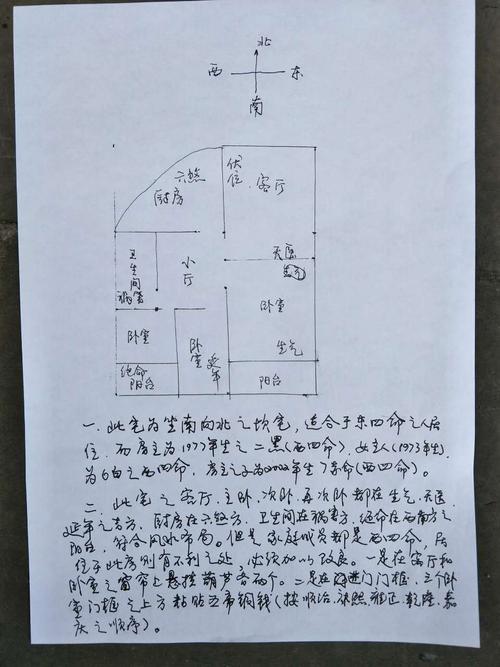 北
西
东
南
六煞
厨房
伏位
客厅
卫生间
祸害
小厅
天医
卧室
生气
卧室
卧室
延年
绝命
阳台
阳台
一、此宅为坐南向北之坎宅，适合于东四命之人居
住，而房主为1977年生之二黑(西四命)，女主人(1973年生)
为6白之西四命，房主之子为2002年生7赤命(西四命)。
二、此宅之客厅、主卧、次卧、再次卧都在生气、天医
延年之吉方，厨房在六煞方，卫生间在祸害方，绝命在西南方之
阳台，符合风水布局。但是家庭成员都是西四命，居
住于此房则有不利之处，必须加以改良。一是在客厅和
卧室之窗帘上悬挂葫芦各两个。二是在进门门框，三个卧
室门框之上方粘贴五帝铜钱(按顺治、康熙、雍正、乾隆、嘉
庆之顺序)。